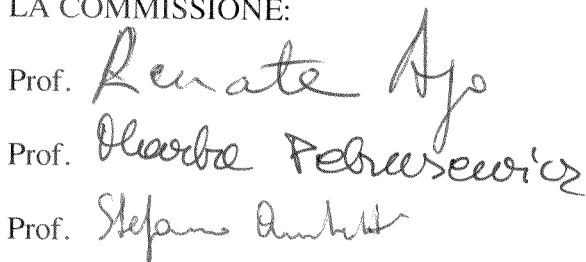 LA COMMISSIONE:
Prof. Renata Ago
Prof. Marta Petrusewicz
Prof. Stefano